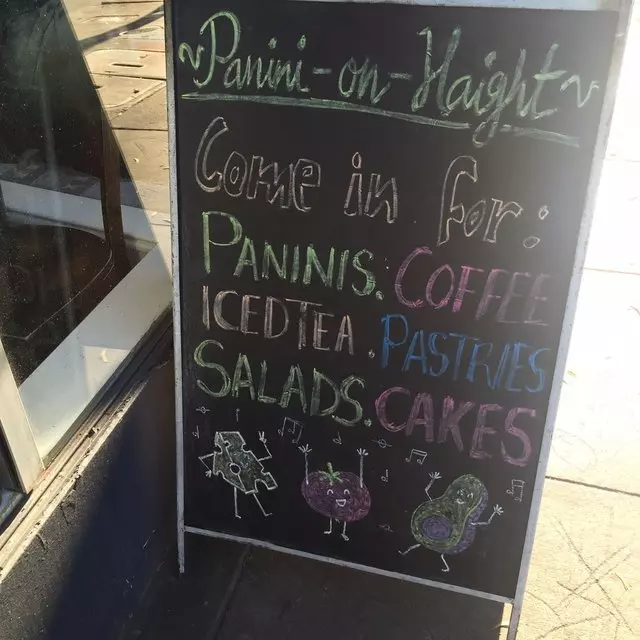 ~Panini-on-Haight~
Come in for:
PANINIS. COFFEE
ICED TEA. PASTRIES
SALADS. CAKES